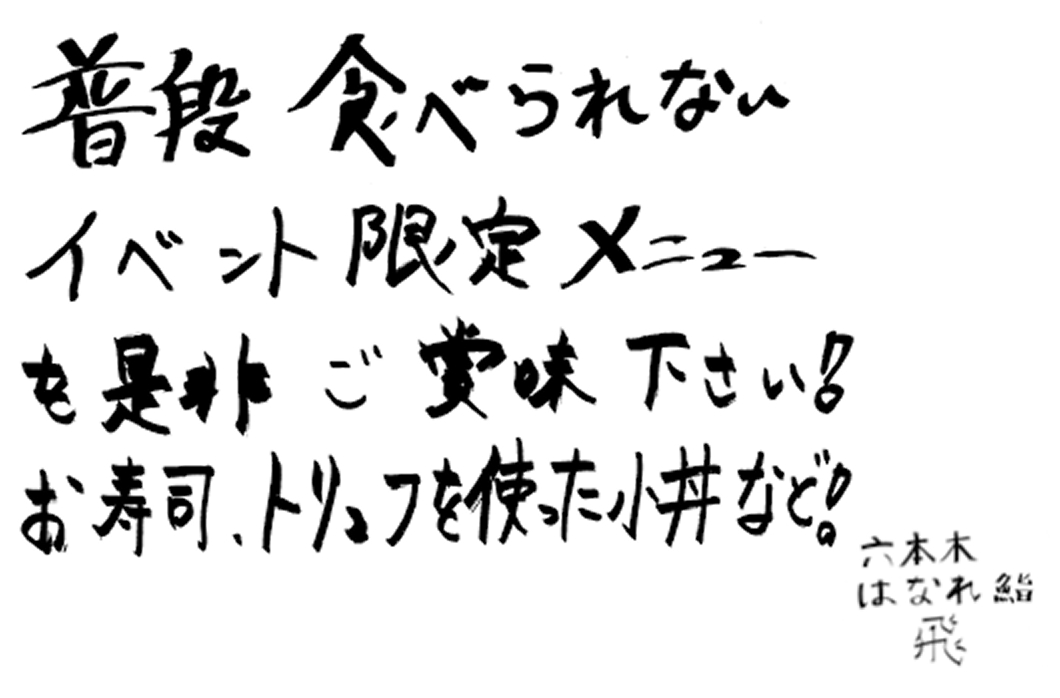 普段 食べられない
イベント 限定 メニュー
を是非 ご賞味 下さい!
お寿司、トリュフを使った小丼など!
六本木
はなれ 鮨
飛